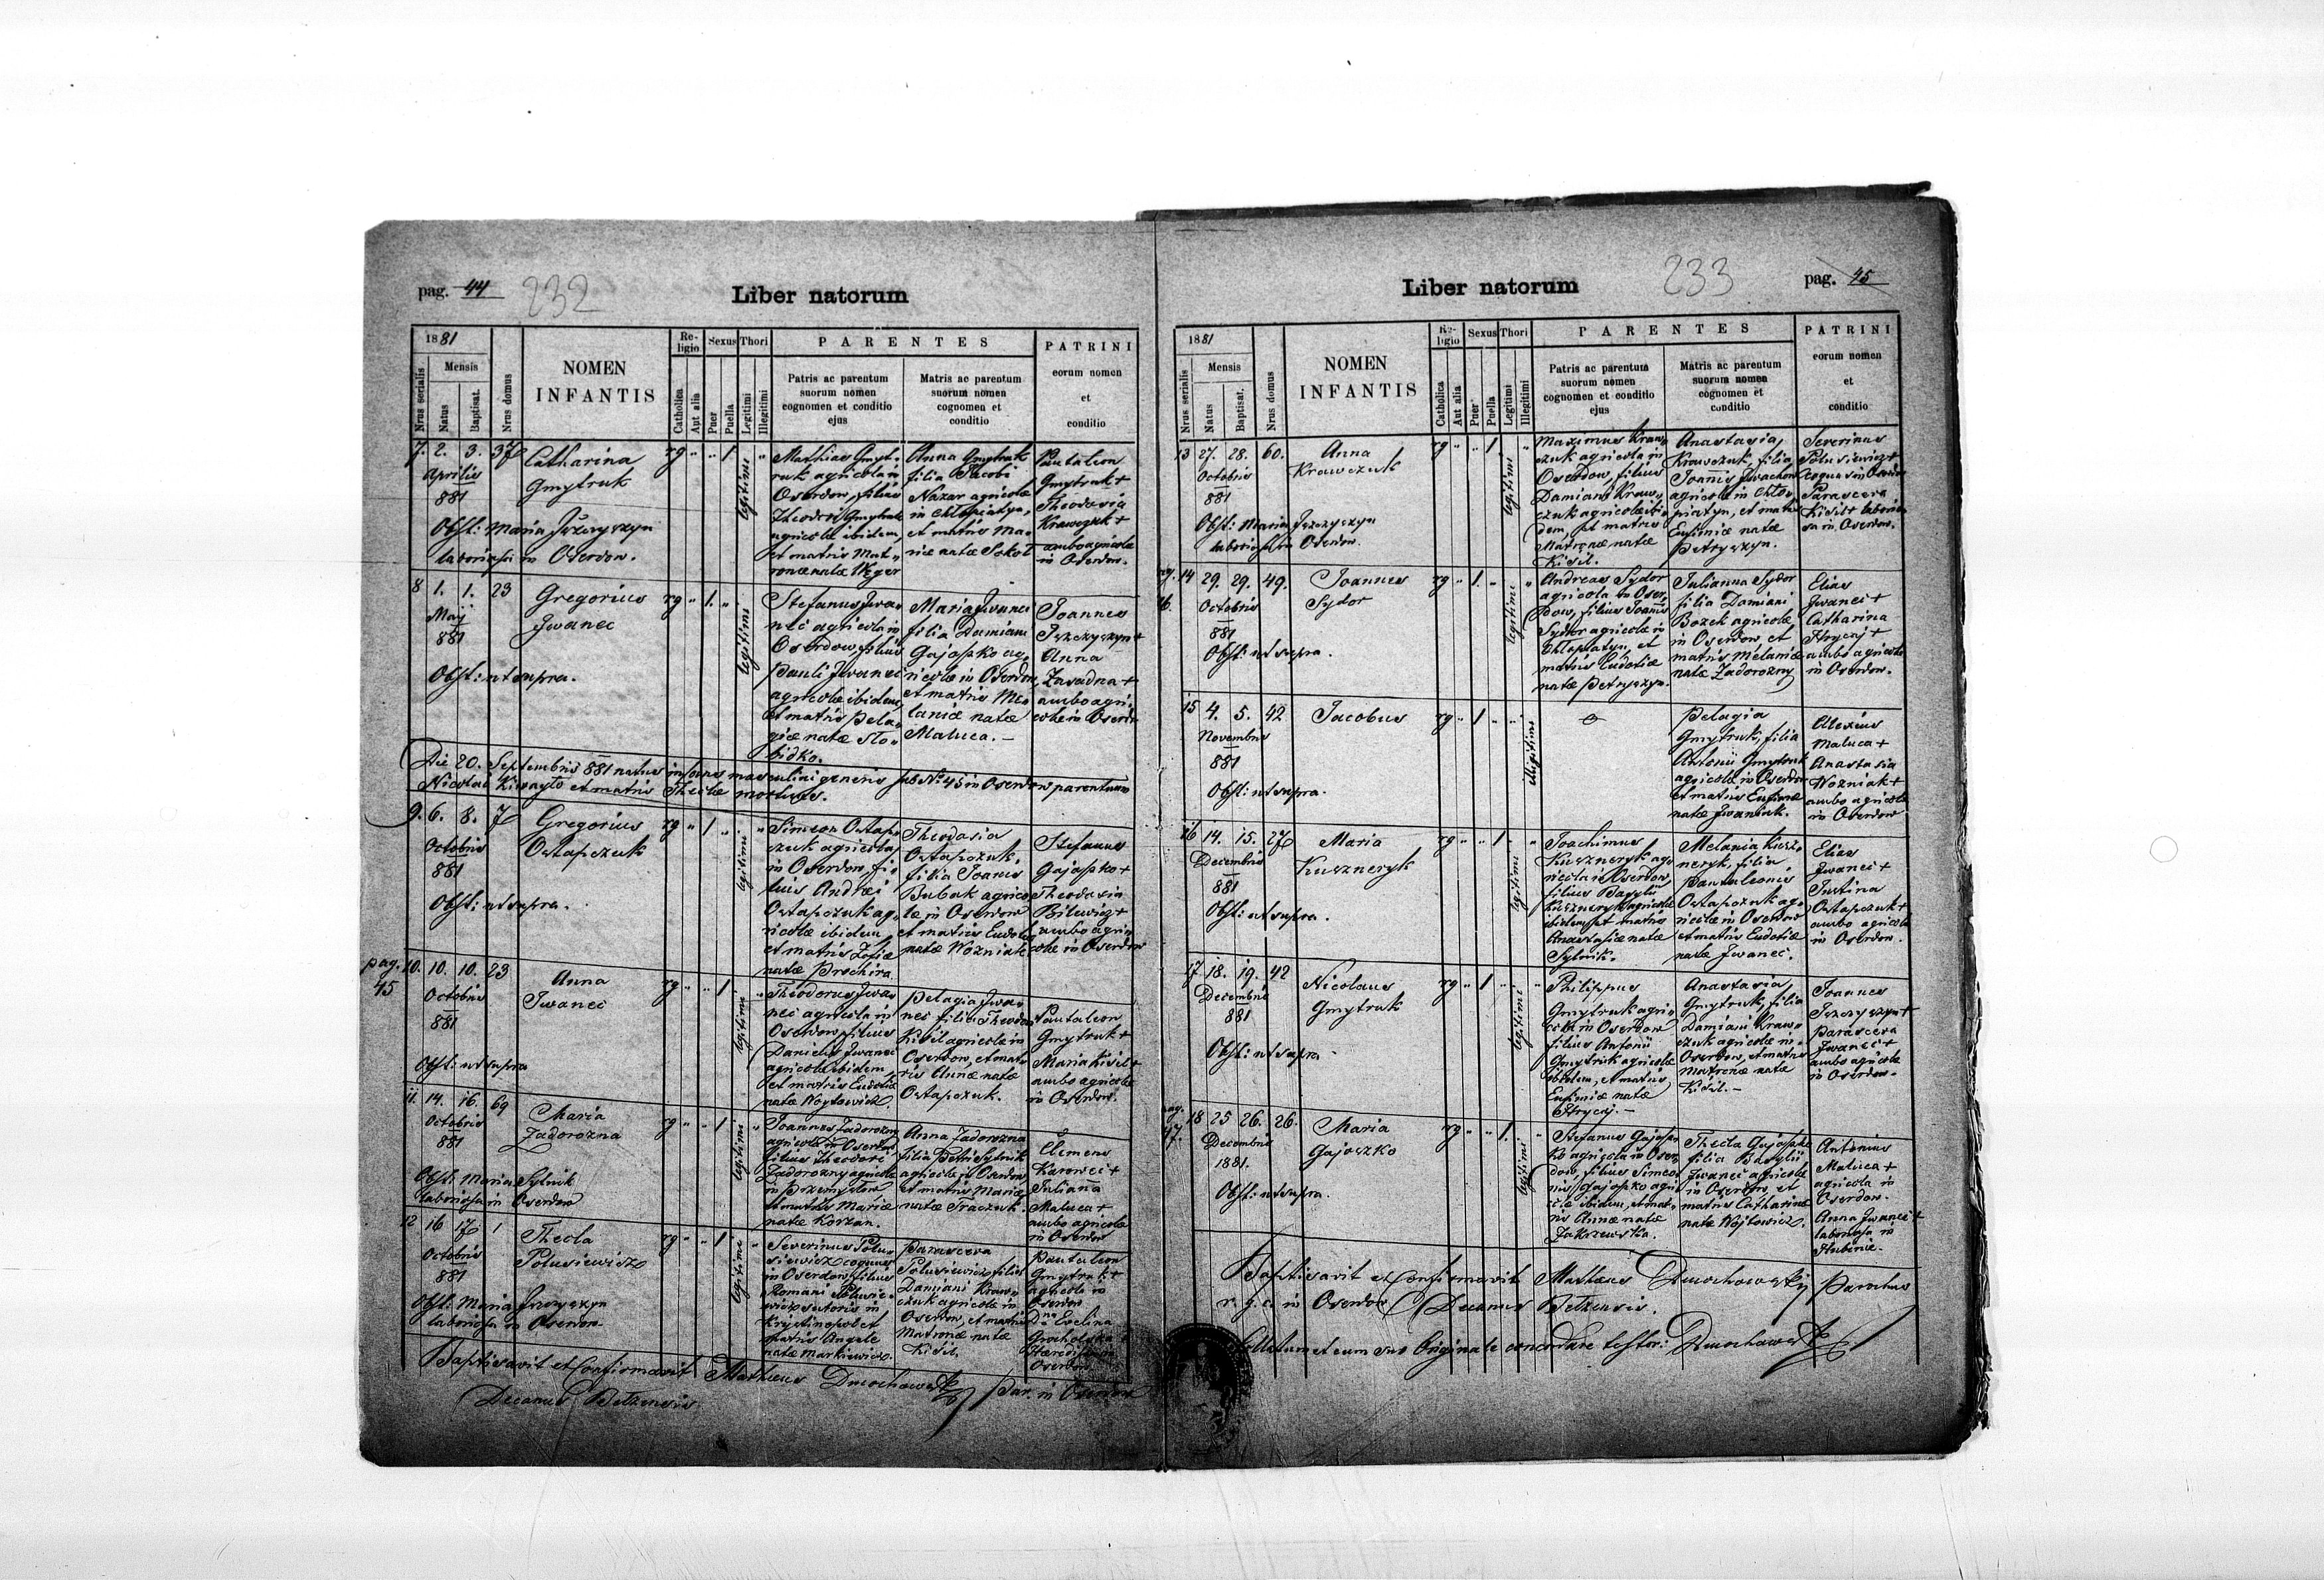 pag. 44 232
Liber natorum
1881
Nrus serialis
Mensis
Natus
Baptisat.
Nrus domus
NOMEN
INFANTIS
Religio
Catholica
Aut alia
Sexus
Puer
Puella
Thori
Legitimi
Illegitimi
PARENTES
Patris ac parentum
suorum nomen
cognomen et conditio
ejus
Matris ac parentum
suorum nomen
cognomen et
conditio
PATRINI
eorum nomen
et
conditio
7. 2. 3. 37
Aprilis
881
Catharina
Gmytruk
rg " " 1 legitimi "
Obst: Maria
laboriosa in Oserdow.
Mathias Gmyt-
ruk agricola in
Oserdow, filius
Theodori Gmytruk
agricolæ ibidem,
et matris Mat-
ronæ natæ
Anna Gmytruk
filia Jacobi
Nazar agricolæ
in Chłopiatyn,
et matris Ma-
riæ natæ Sokol
Pantaleon
Gmytruk +
Theodosia
Krawczuk +
ambo agricolæ
in Oserdow.
8 1. 1. 23
Maj
881
Gregorius
Iwanec
rg " 1. " legitimi
Obst: ut supra.
Stefanus Iwa-
nec agricola in
Oserdow, filius
Pauli Iwanec
agricolæ ibidem,
et matris Pela-
giæ natæ Slo-
bidko.
Maria Iwanec
filia Damiani
Gajoszko ag-
ricolæ in Oserdow
et matris Me-
laniæ natæ
Maluca. —
Joannes
Anna
Zavadna +
ambo agri-
colæ in Oserdow
Die 20. Septembris 881 natus infans masculini generis sub Nr 45 in Oserdow parentum
Nicolai et matris Theclæ mortuus.
9. 6. 8. 7
Octobris
881
Gregorius
Ostapczuk
rg " 1 " legitimi "
Obst: ut supra.
Simeon Ostap-
czuk agricola
in Oserdow, fi-
lius Andrei
Ostapczuk ag-
ricolæ ibidem,
et matris Zofiæ
natæ Prochira
Theodosia
Ostapczuk,
filia Joannis
Bubak agrico-
læ in Oserdow
et matris Eudociæ
natæ Wozniak
Stefanus
Gajoszko +
Theodosia
Bilewicz +
ambo agri-
colæ in Oserdow
pag.
45
10. 10. 10. 23
Octobris
881
Anna
Iwanec
rg " " 1 legitimi "
Obst: ut supra
Theodorus Iwa-
nec agricola in
Oserdow, filius
Danielis Iwanec
agricolæ ibidem,
et matris Eudociæ
natæ Woytowicz.
Pelagia Iwa-
nec filia Theodori
Kisil agricolæ in
Oserdow, et mat-
ris Annæ natæ
Ostapczuk.
Pantaleon
Gmytruk +
Maria Kisil +
ambo agricolæ
in Oserdow.
11. 14. 16. 69
Octobris
881
Maria
Zadorozna
rg " " 1 legitimi "
Obst: Maria Sytnik
laboriosa in Oserdow
Joannes Zadorozny
agricola in Oserdow
filius Theodori
Zadorozny agricolæ
in Przemysłow
et matris Mariæ
natæ Korzan.
Anna Zadorozna
filia Petri Sytnik
agricolæ in Oserdow
et matris Mariæ
natæ Traczuk.
Clemens
Karowec +
Julianna
Maluca +
ambo agricolæ
in Oserdow
12 16 17 1
Octobris
881
Thecla
Polusiewicz
rg " " 1 legitimi "
Obst: Maria
laboriosa in Oserdow.
Severinus Polu-
siewicz coquus
in Oserdow, filius
Romani Polusie-
wicz sutoris in
Krystinopol et
matris Angelæ
natæ Markiewicz.
Parascева
Polusiewicz filia
Damiani Kraw-
czuk agricolæ in
Oserdow, et matris
Matronæ natæ
Kisil.
Pantaleon
Gmytruk +
agricola in
Oserdow
Dna Evelina
Oserdow
Baptisavit et Confirmavit Matheus Dmochowski Par. in Oserdow
Decanus Belzensis
Liber natorum
233 pag. 45
1881
Nrus serialis
Mensis
Natus
Baptisat.
Nrus domus
NOMEN
INFANTIS
Religio
Catholica
Aut alia
Sexus
Puer
Puella
Thori
Legitimi
Illegitimi
PARENTES
Patris ac parentum
suorum nomen
cognomen et conditio
ejus
Matris ac parentum
suorum nomen
cognomen et
conditio
PATRINI
eorum nomen
et
conditio
13 27. 28. 60.
Octobris
881
Anna
Krawczuk
rg " " 1 legitimi "
Obst: Maria
laboriosa in Oserdow.
Maximus Kraw-
czuk agricola in
Oserdow, filius
Damiani Kraw-
czuk agricolæ ibi-
dem, et matris
Matronæ natæ
Kisil.
Anastasia
Krawczuk, filia
Joannis
agricolæ in Chłop-
piatyn, et matris
Eufimiæ natæ
Petryszyn.
Severinus
Polusiewicz +
coquus in Oserdow
Parasceva
Kisil + laborio-
sa in Oserdow.
14 29. 29. 49.
Octobris
881
Joannes
Sydor
rg " 1. " legitimi "
Obst: ut supra.
Andreas Sydor
agricola in Oser-
dow, filius Joannis
Sydor agricolæ in
Chłopiatyn, et
matris Eudociæ
natæ Petryszyn.
Julianna Sydor
filia Damiani
Bozek agricolæ
in Oserdow, et
matris Melaniæ
natæ Zadorozny
Elias
Iwanec +
Catharina
Hrycaj +
ambo agricolæ
in Oserdow.
15 4. 5. 42
Novembris
881
Jacobus
rg " 1 " " illegitimi
Obst: ut supra.
Pelagia
Gmytruk, filia
Antonii Gmytruk
agricolæ in Oserdow
et matris Eufimiæ
natæ Iwaniuk.
Alexius
Maluca +
Anastasia
Wozniak +
ambo agricolæ
in Oserdow
16 14. 15. 27
Decembris
881
Maria
Kuszneryk
rg " " 1 legitimi "
Obst: ut supra.
Joachimus
Kuszneryk ag-
ricola in Oserdow,
filius Basylii
Kuszneryk agricolæ
ibidem, et matris
Anastasiæ natæ
Sytnik.
Melania Kusz-
neryk, filia
Pantaleonis
Ostapczuk ag-
ricolæ in Oserdow
et matris Eudociæ
natæ Iwanec.
Elias
Iwanec +
Justina
Ostapczuk +
ambo agricolæ
in Oserdow.
17 18. 19. 42
Decembris
881
Nicolaus
Gmytruk
rg " 1 " legitimi "
Obst: ut supra
Philippus
Gmytruk agri-
cola in Oserdow
filius Antonii
Gmytruk agricolæ
ibidem, et matris
Eufimiæ natæ
Hrycaj. —
Anastasia
Gmytruk, filia
Damiani Kraw-
czuk agricolæ in
Oserdow, et matris
Matronæ natæ
Kisil. —
Joannes
Parasceva
Iwanec +
ambo agricolæ
in Oserdow.
18 25 26. 26.
Decembris
1881.
Maria
Gajoszko
rg " " 1. legitimi "
Obst: ut supra.
Stefanus Gajosz-
ko agricola in Oser-
dow, filius Simeo-
nis Gajoszko agri-
colæ ibidem, et mat-
ris Annæ natæ
Zakrzewska.
Thecla Gajoszko
filia Basylii
Iwanec agricolæ
in Oserdow, et
matris Catharinæ
natæ Wojtowicz.
Antonius
Maluca +
agricola in
Oserdow.
Anna Iwanec +
laboriosa in
Baptisavit et Confirmavit Matheus Dmochowski Parochus
r. g. c. in Oserdow Decanus Belzensis.
Collatum et cum suo Originale concordare testor: Dmochowski